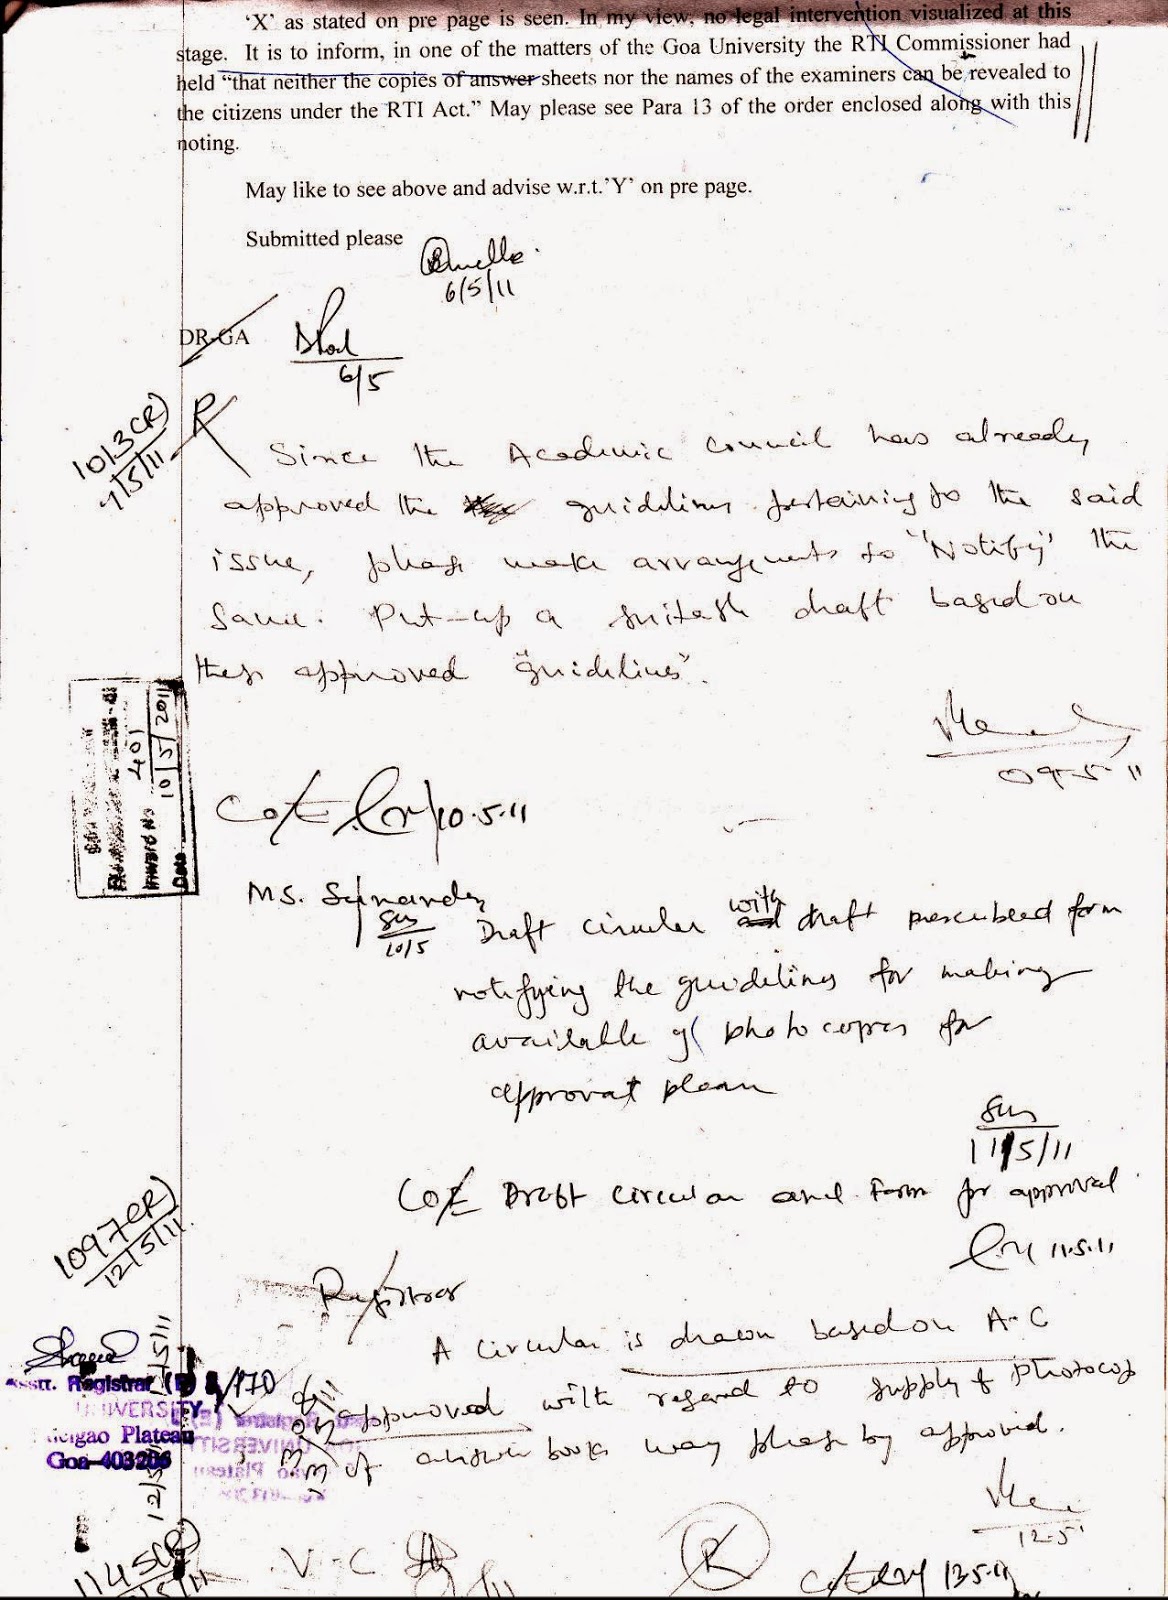 'X' as stated on pre page is seen. In my view, no legal intervention visualized at this
stage. It is to inform, in one of the matters of the Goa University the RTI Commissioner had
held “that neither the copies of answer sheets nor the names of the examiners can be revealed to
the citizens under the RTI Act.” May please see Para 13 of the order enclosed along with this
noting.
May like to see above and advise w.r.t.'Y' on pre page.
Submitted please
6/5/11
DR-GA
6/5
1013(R)
R
Since the Academic Council has already
approved the guidelines pertaining to the said
issue, please make arrangements to "Notify" the
same. Put-up a suitable draft based on
these approved "guidelines".
09-5-11
Inward No 401
Date 10/5/2011
CoE 10.5.11
Ms. Sunanda
10/5
Draft circular with draft prescribed form
notifying the guidelines for making
available of photocopies for
approval please
11/5/11
CoE Draft circular and Form for approval.
11.5.11
1097(R)
12/5/11
Registrar
A circular is drawn based on A.C
approved with regard to supply of photocopy
of answer books may please be approved.
12-5
Asstt. Registrar
UNIVERSITY
Plateau
Goa-403206
12/5/11
1145(R)
V-C
R
CoE 13.5.11